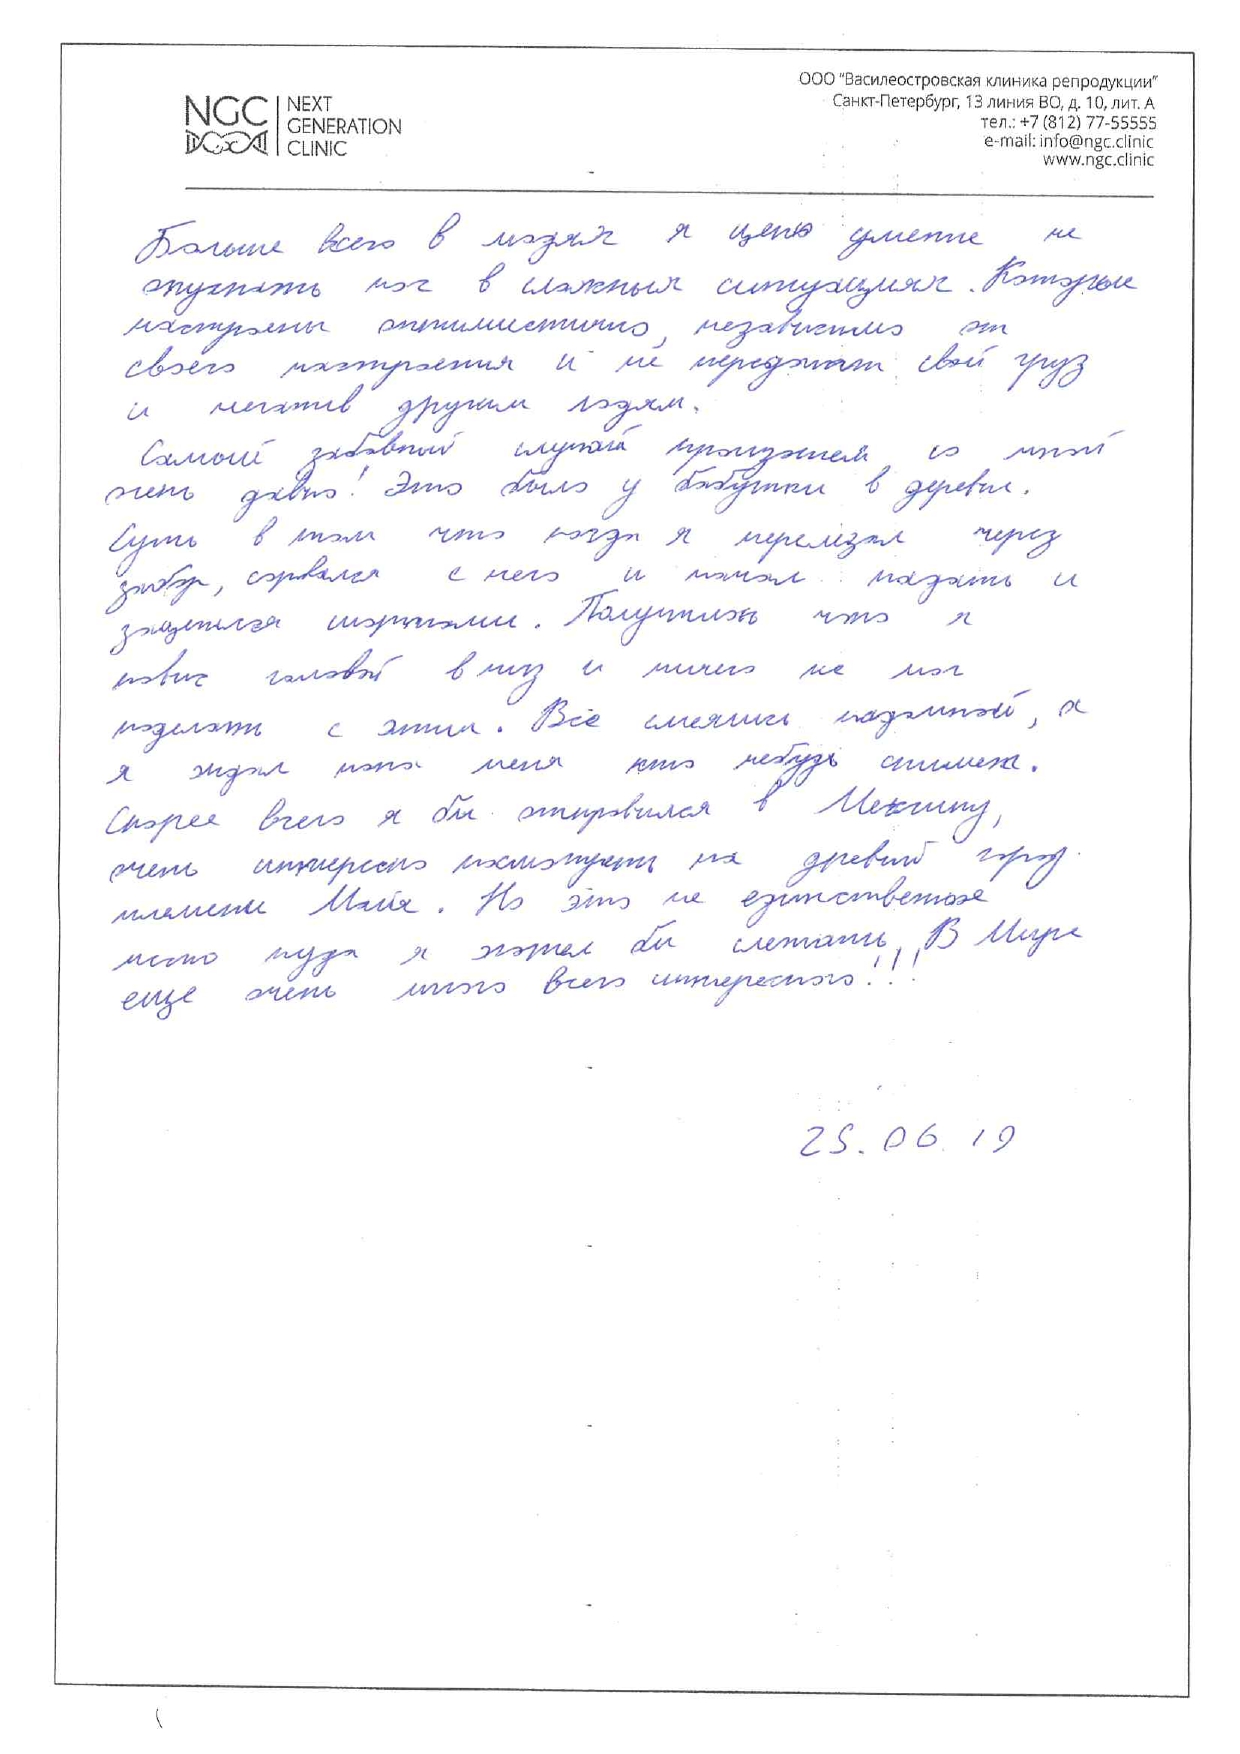 NGC
NEXT
GENERATION
CLINIC
ООО "Василеостровская клиника репродукции"
Санкт-Петербург, 13 линия ВО, д. 10, лит. А
тел.: +7 (812) 77-55555
e-mail: info@ngc.clinic
www.ngc.clinic
Больше всего в людях я ценю умение не
опускать нос в сложных ситуациях. Которые
настроены оптимистично, независимо от
своего настроения и не передают свой груз
и негатив другим людям.
Самый забавный случай произошел со мной
очень давно! Это было у бабушки в деревне.
Суть в том что когда я перелезал через
забор, сорвался с него и начал падать и
зацепился шортами. Получилось что я
повис головой в низ и ничего не мог
поделать с этим. Все смеялись надомной, а
я ждал пока меня кто нибудь снимет.
Скорее всего я бы отправился в Мексику,
очень интересно посмотреть на древний город
племени Майя. Но это не единственное
место куда я хотел бы слетать, В Мире
еще очень много всего интересного!!!
25.06.19